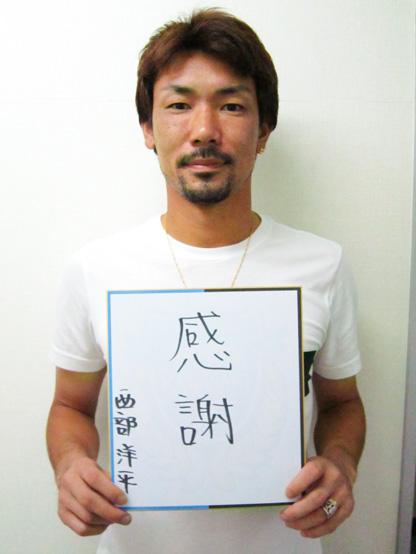 感謝
西部洋平